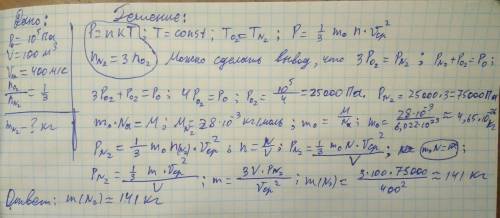 Дано:
P₀ = 10⁵ Па
V = 100 м³
Vкв = 400 м/с
nO₂/nN₂ = 1/3
mN₂ - ? кг
Решение:
P = nKT; T = const; TO₂ = TN₂; P = 1/3 m₀ n · Vср²
nN₂ = 3nO₂ Можно сделать вывод, что 3PO₂ = PN₂; PN₂ + PO₂ = P₀;
3PO₂ + PO₂ = P₀; 4PO₂ = P₀; PO₂ = 10⁵/4 = 25000 Па. PN₂ = 25000·3 = 75000 Па
m₀·Nа = M; MN₂ = 28·10⁻³ кг/моль; m₀ = M/Nа; m₀ = 28·10⁻³/6,022·10²³ ≈ 4,65·10⁻²⁶ кг
PN₂ = 1/3 m₀ n(N₂) · Vср²; n = N/V; PN₂ = 1/3 · m₀ N · Vср²/V; m₀N = m;
PN₂ = 1/3 · m · Vср²/V; m = 3V·PN₂/Vср²; m(N₂) = 3·100·75000/400² ≈ 141 кг
Ответ: m(N₂) ≈ 141 кг